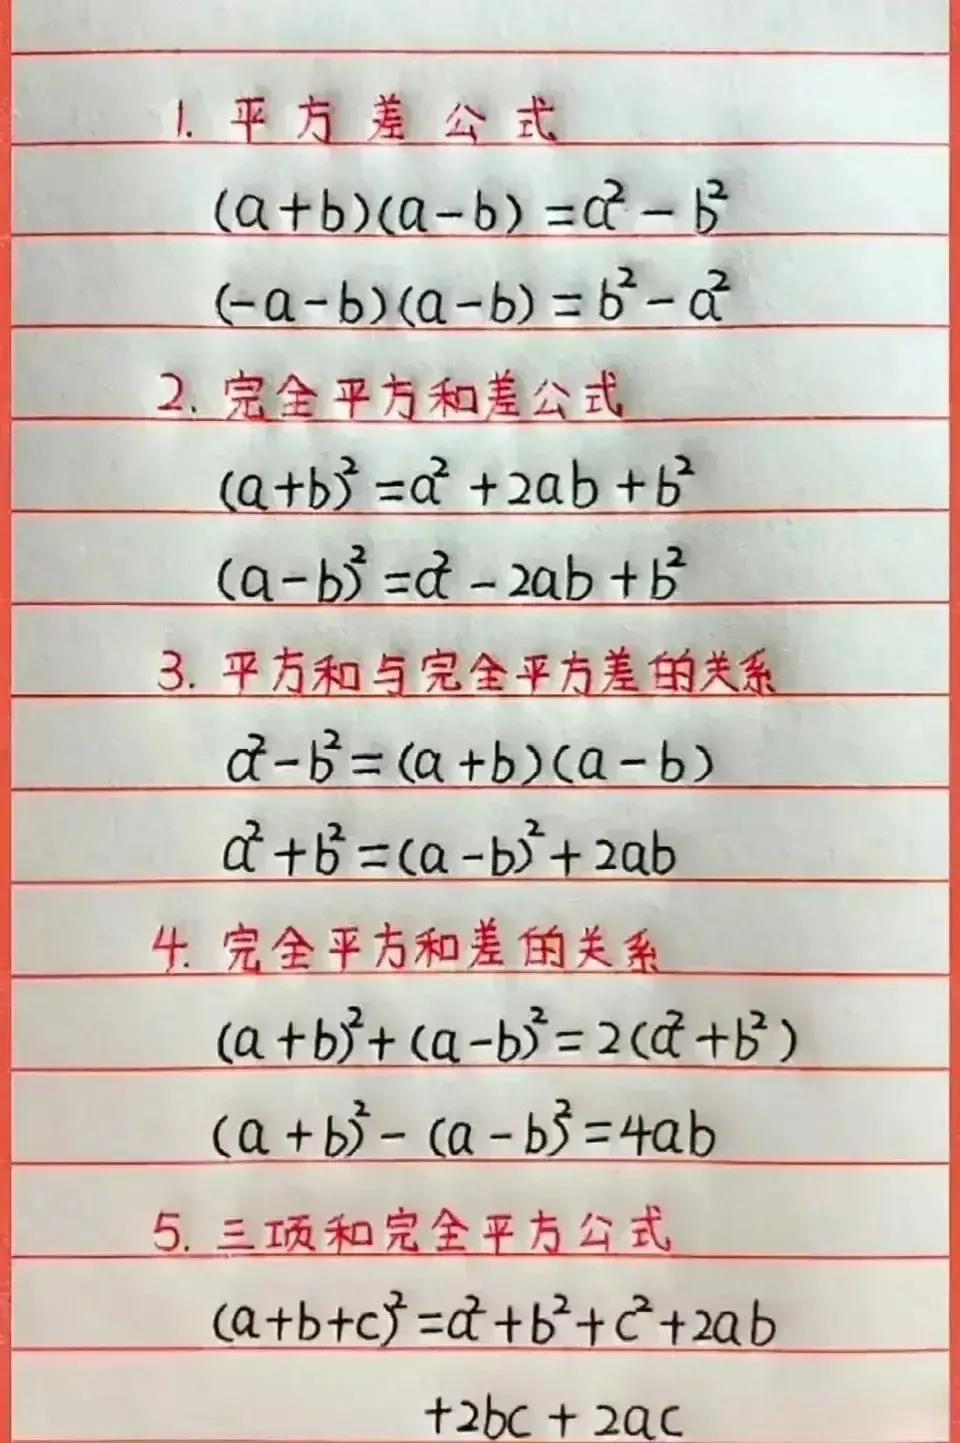 1. 平方差公式
(a+b)(a-b)=a²-b²
(-a-b)(a-b)=b²-a²
2. 完全平方和差公式
(a+b)²=a²+2ab+b²
(a-b)²=a²-2ab+b²
3. 平方和与完全平方差的关系
a²-b²=(a+b)(a-b)
a²+b²=(a-b)²+2ab
4. 完全平方和差的关系
(a+b)²+(a-b)²=2(a²+b²)
(a+b)²-(a-b)²=4ab
5. 三项和完全平方公式
(a+b+c)²=a²+b²+c²+2ab
+2bc+2ac